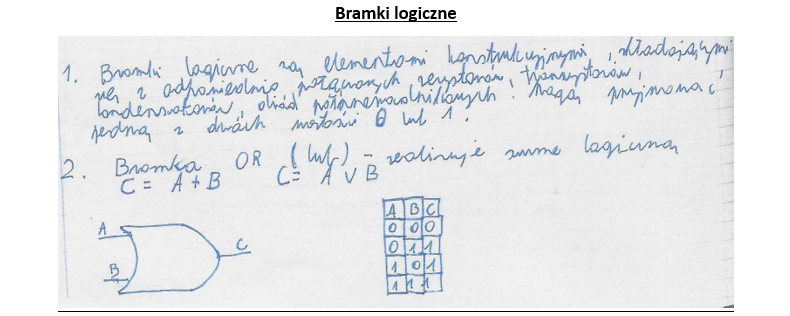 Bramki logiczne
1. Bramki logiczne są elementami konstrukcyjnymi, składającymi
się z odpowiednio połączonych rezystorów, tranzystorów,
kondensatorów, diod półprzewodnikowych. Mogą przyjmować
jedną z dwóch wartości 0 lub 1.
2. Bramka OR (lub) - realizuje sumę logiczną
C = A + B C = A ∨ B
A B C
A B C
0 0 0
0 1 1
1 0 1
1 1 1